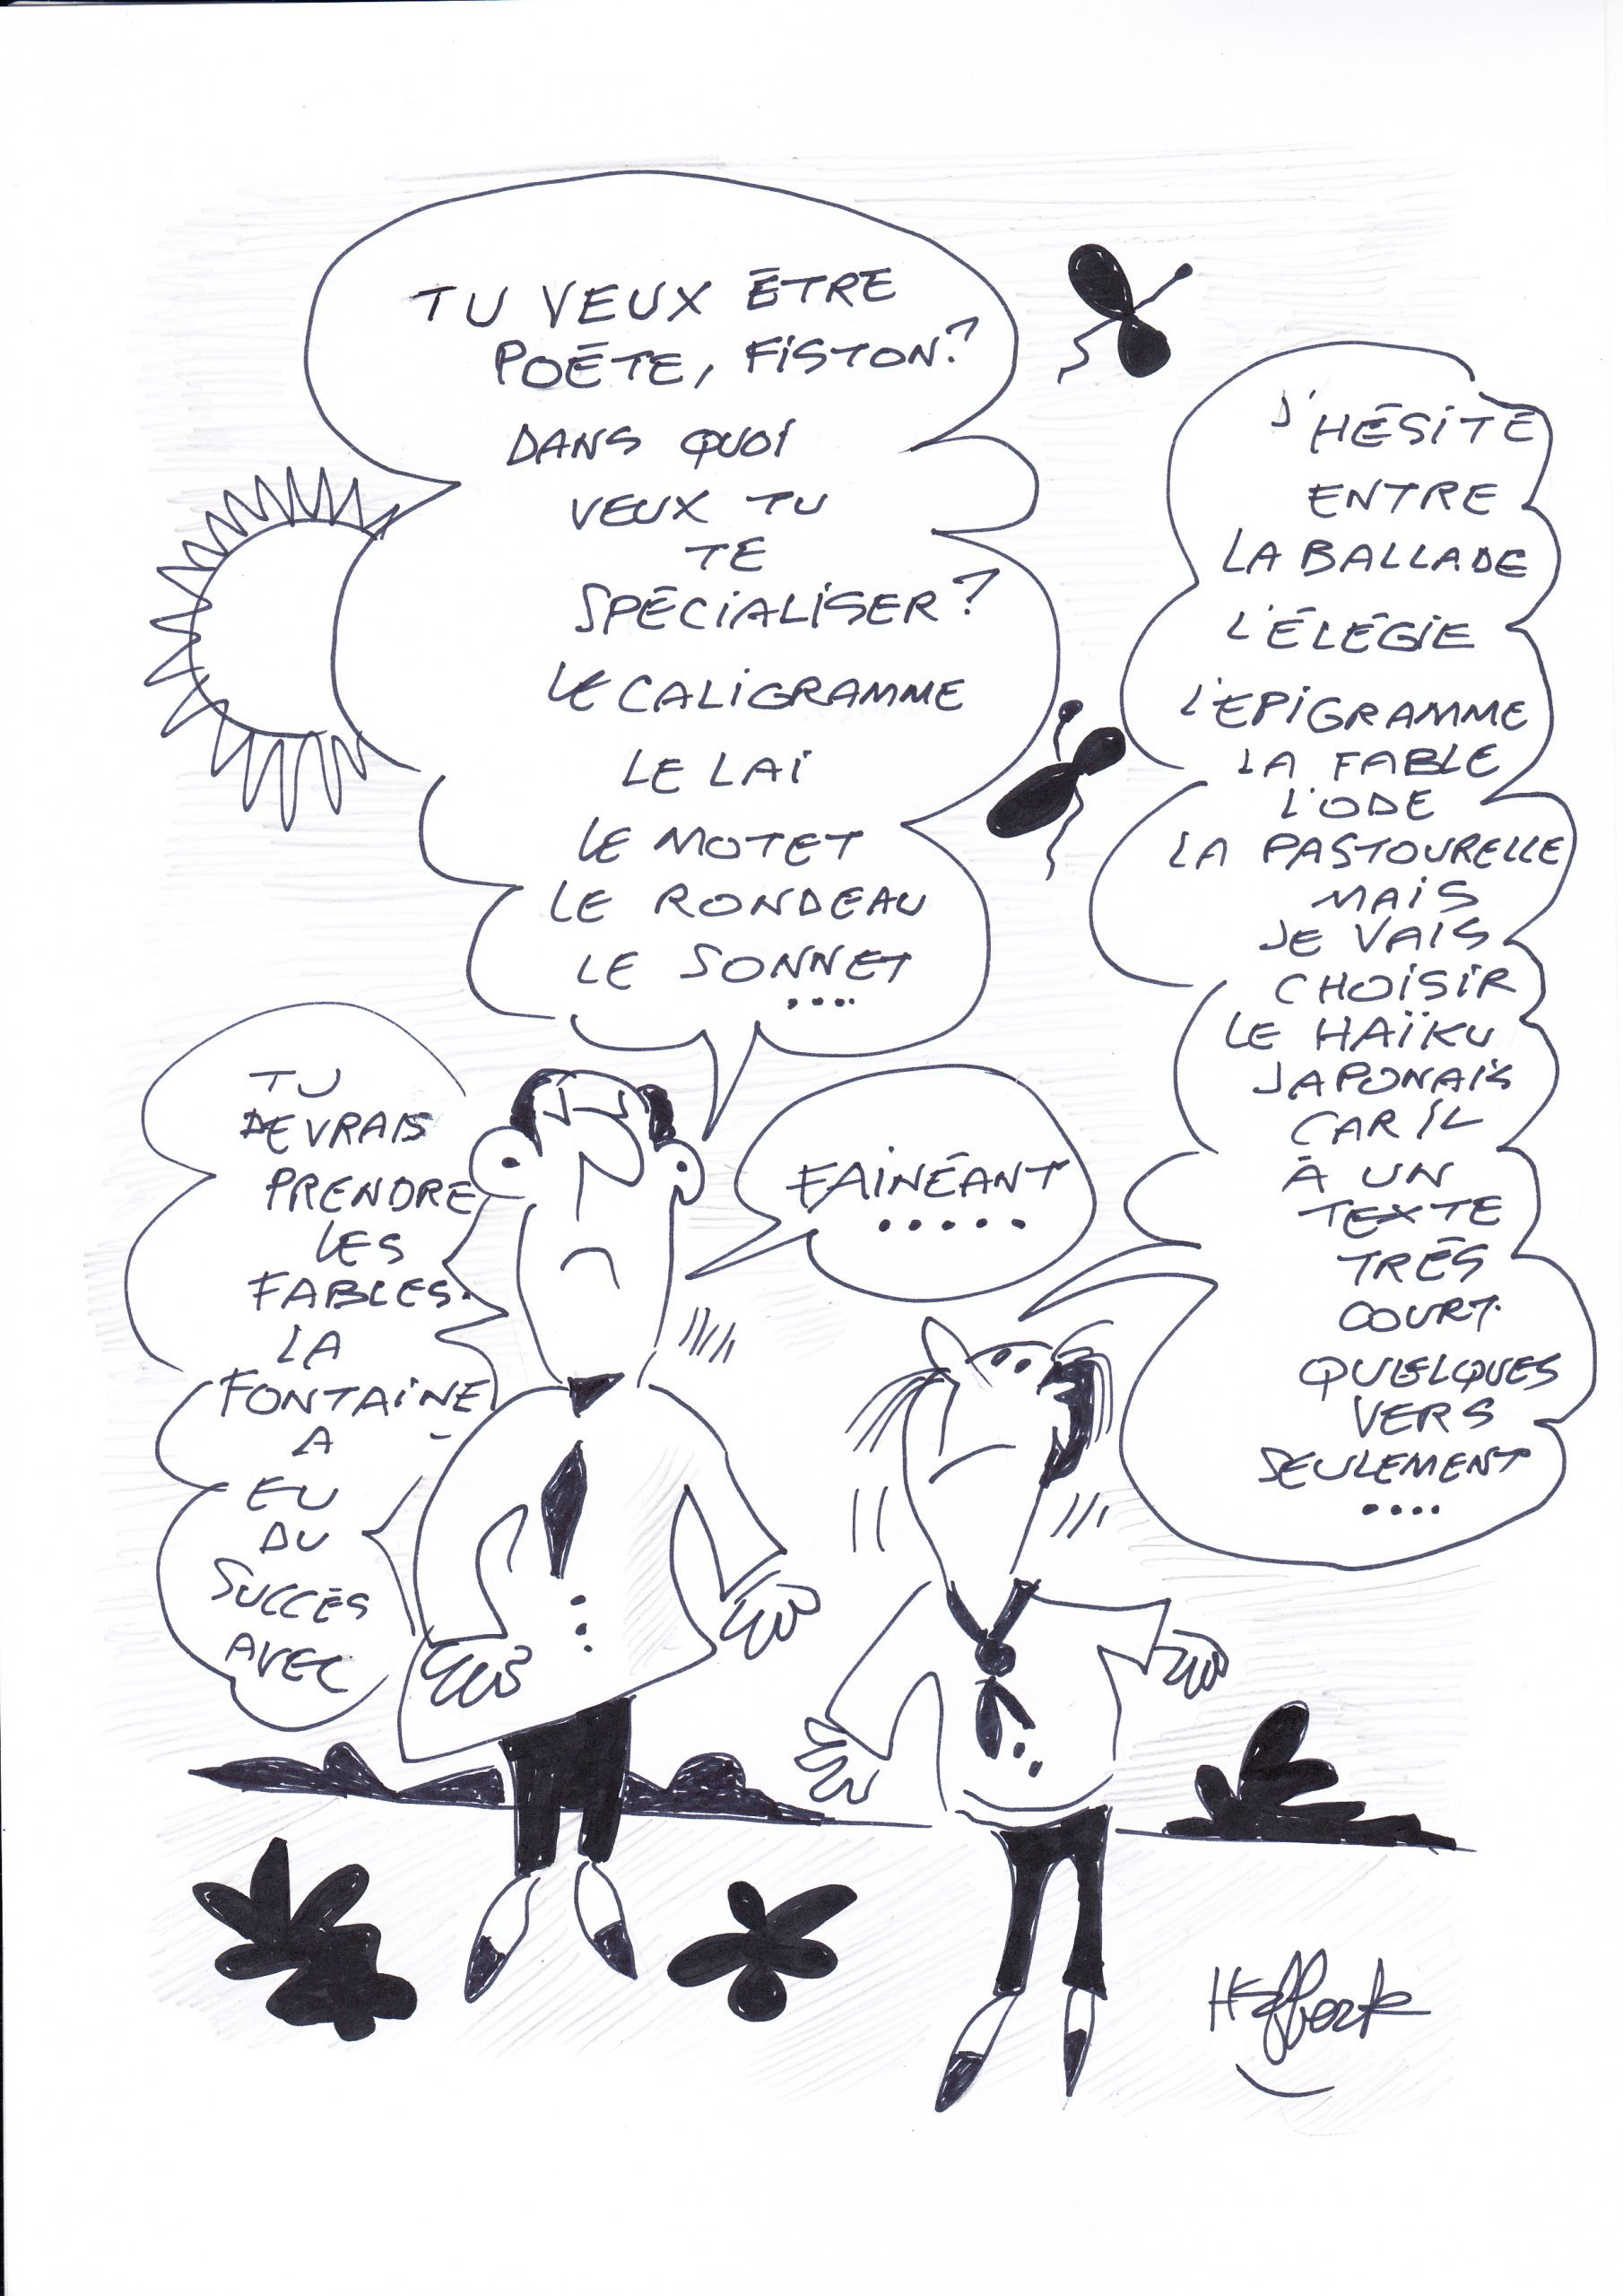 TU VEUX ÊTRE
POÈTE, FISTON?
DANS QUOI
VEUX TU
TE
SPÉCIALISER?
LE CALIGRAMME
LE LAI
LE MOTET
LE RONDEAU
LE SONNET
....
J'HÉSITE
ENTRE
LA BALLADE
L'ÉLÉGIE
L'EPIGRAMME
LA FABLE
L'ODE
LA PASTOURELLE
MAIS
JE VAIS
CHOISIR
LE HAÏKU
JAPONAIS
CAR IL
À UN
TEXTE
TRÈS
COURT.
QUELQUES
VERS
SEULEMENT
....
FAINÉANT
.....
TU
DEVRAIS
PRENDRE
LES
FABLES.
LA
FONTAINE
A
EU
DU
SUCCÈS
AVEC